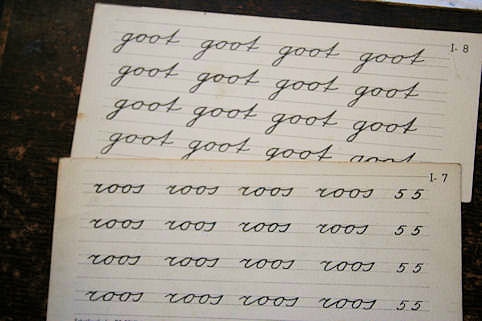 I- 8
goot goot goot goot
goot goot goot goot
goot goot goot goot
goot goot goot goot
I- 7
roos roos roos roos 5 5
roos roos roos roos 5 5
roos roos roos roos 5 5
roos roos roos roos 5 5